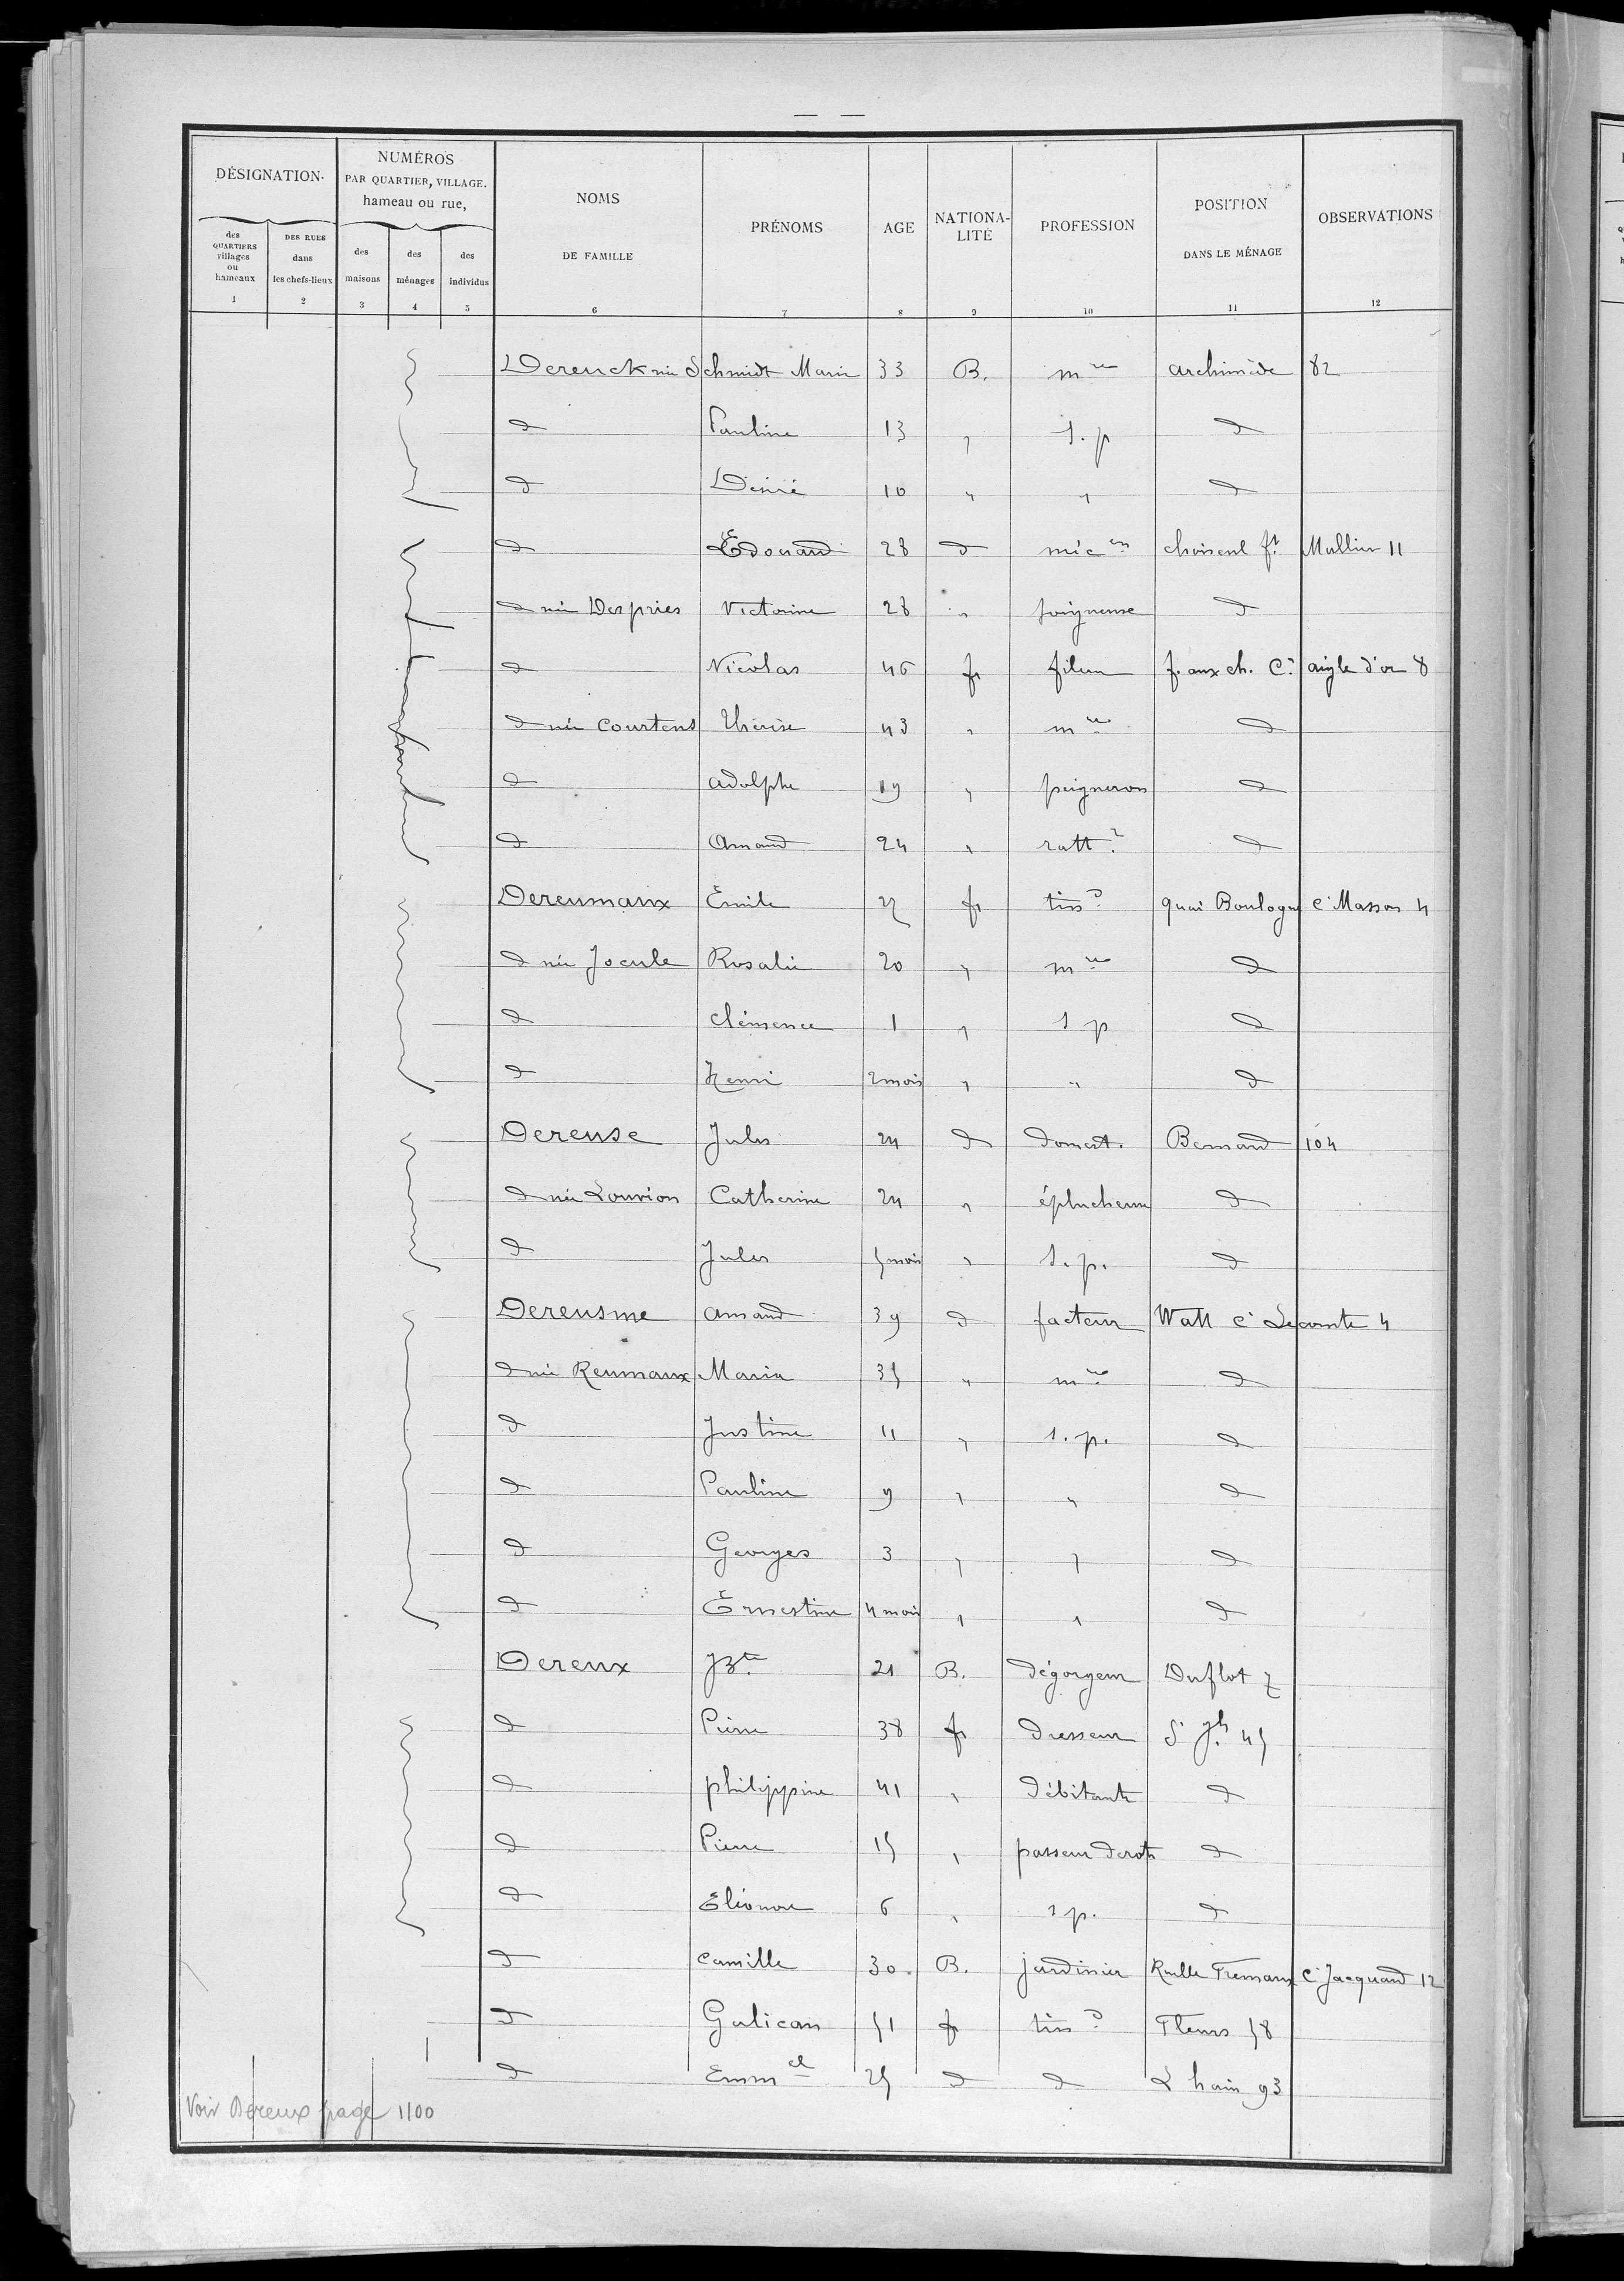 — —
DÉSIGNATION.
NUMÉROS
PAR QUARTIER, VILLAGE.
hameau ou rue,
NOMS
DE FAMILLE
PRÉNOMS
AGE
NATIONA-
LITÉ
PROFESSION
POSITION
DANS LE MÉNAGE
OBSERVATIONS
des
QUARTIERS
villages
ou
hameaux
DES RUES
dans
les chefs-lieux
des
maisons
des
ménages
des
individus
1 2 3 4 5 6 7 8 9 10 11 12
Dereuck née Schmidt Marie 33 B. mre archimède 82
d Pauline 13 " s. p d
d Désiré 10 " " d
d Edouard 28 d mécen choiseul ft Mullier 11
d née Despries Victorine 28 " soigneuse d
d Nicolas 46 fr fileur f. aux ch. C. aigle d'or 8
d née Courtens Thérèse 43 " mre d
d adolphe 19 " peigneron d
d Amand 24 " ratt. d
Dereumaux Emile 22 fr tissd quai Boulogne c. Masson 4
d née Jocule Rosalie 20 " mre d
d clémence 1 " s p d
d Henri 2 mois " " d
Dereuse Jules 24 d domest. Bernard 104
d née Louvion Catherine 24 " éplucheuse d
d Jules 5 mois " s. p. d
Dereusme amand 39 d facteur Watt c. Lecomte 4
d née Reumaux Maria 35 " mre d
d Justine 11 " s. p. d
d Pauline 9 " " d
d Georges 3 " " d
d Ernestine 4 mois " " d
Dereux JBte 21 B. dégorgeur Duflot 7
d Pierre 38 fr dresseur St Jh 45
d philippine 41 " débitante d
d Pierre 15 " passeur de rots d
d Eléonore 6 " s p. d
d camille 30 B. jardinier Ruelle Fremaux c. Jacquard 12
d Galican 51 fr tissd Fleurs 58
d Emmel 25 d d L hain 93
Voir Dereux page 1100